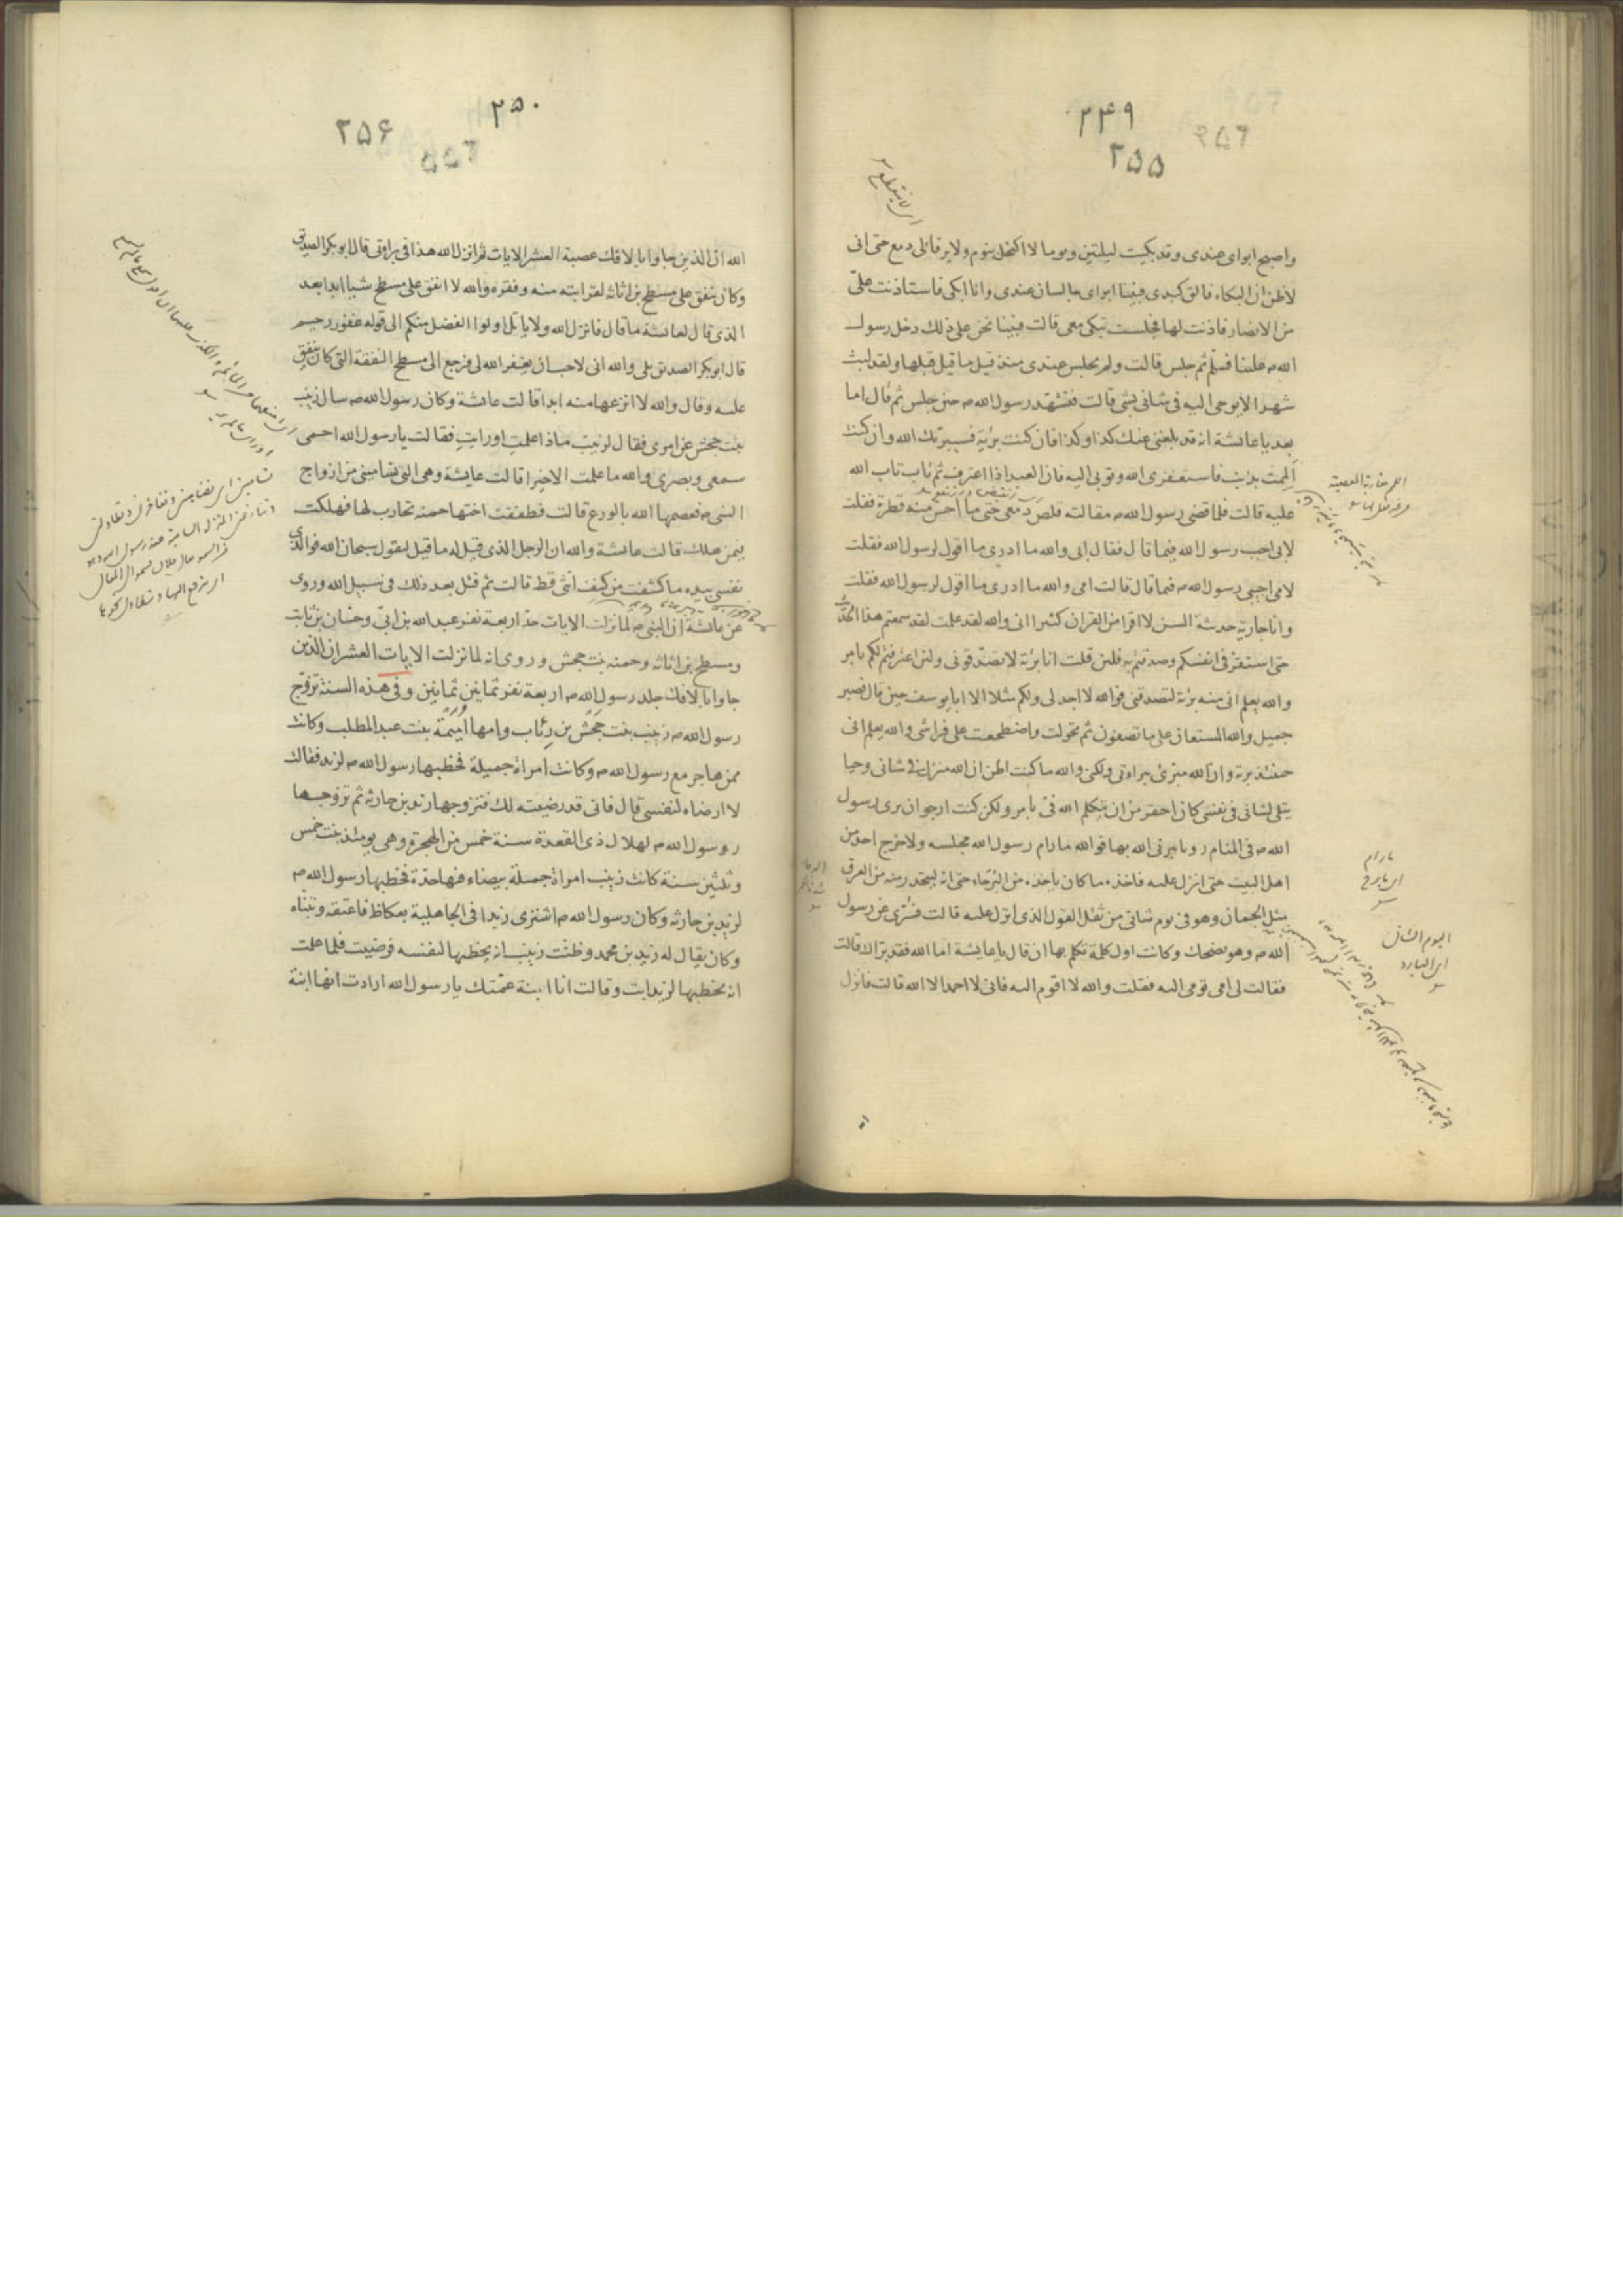 ۲۴۹
۲۵۵
واصبح ابوای عندی وقد بکیت لیلتین ویوما لا اکتحل بنوم ولا یرقا لی دمع حتی انی
لاظن ان البکاء فالق کبدی فبینا ابوای جالسان عندی وانا ابکی فاستاذنت علیّ
من الانصار فاذنت لها فجلست تبکی معی قالت فبینا نحن علی ذلك دخل رسول
الله ص علینا فسلم ثم جلس قالت ولم یجلس عندی منذ قیل ما قیل قبلها ولقد لبث
شهرا لا یوحی الیه فی شانی بشی قالت فتشهد رسول الله ص حین جلس ثم قال اما
بعد یا عائشة انه قد بلغنی عنك کذا وکذا فان کنت بریّة فسیبرئك الله وان کنت
المت بذنب فاستغفری الله وتوبی الیه فان العبد اذا اعترف ثم تاب تاب الله
علیه قالت فلما قضی رسول الله ص مقالته قلص دمعی حتی ما احس منه قطرة فقلت
لابی اجب رسول الله فیما قال فقال ابی والله ما ادری ما اقول لرسول الله فقلت
لامی اجیبی رسول الله ص فیما قال قالت امی والله ما ادری ما اقول لرسول الله فقلت
وانا جاریة حدیثة السن لا اقرا من القران کثیرا انی والله لقد علمت لقد سمعتم هذا الحدیث
حتی استقر فی انفسکم وصدقتم به فلئن قلت انا بریّة لا تصدقونی ولئن اعترفتم لکم بامر
والله یعلم انی منه بریّة لتصدقنی فوالله لا اجد لی ولکم مثلا الا ابا یوسف حین قال فصبر
جمیل والله المستعان علی ما تصفون ثم تحولت واضطجعت علی فراشی والله یعلم انی
حینئذ بریّة وان الله مبرئی ببراءتی ولکن والله ما کنت اظن ان الله منزل فی شانی وحیا
یتلی لشانی فی نفسی کان احقر من ان یتکلم الله فیّ بامر ولکن کنت ارجو ان یری رسول
الله ص فی المنام رویا یبرئنی الله بها فوالله ما رام رسول الله مجلسه ولا خرج احد من
اهل البیت حتی انزل علیه فاخذه ما کان یاخذه من البرحاء حتی انه لیتحدر منه من العرق
مثل الجمان وهو فی یوم شاتی من ثقل القول الذی انزل علیه قالت فسری عن رسول
الله ص وهو یضحك وکانت اول کلمة تکلم بها ان قال یا عایشة اما الله فقد براك قالت
فقالت لی امی قومی الیه فقلت والله لا اقوم الیه فانی لا احمد الا الله قالت فانزل
ما رام
ای ما برح
الیوم الشاتی
ای البارد
۲۵۰
۲۵۶
الله ان الذین جاوا بالافك عصبة العشر الایات ثم انزل الله هذا فی براوتی قال ابو بکر الصدیق
وکان ینفق علی مسطح بن اثاثه لقرابته منه وفقره والله لا انفق علی مسطح شیا ابدا بعد
الذی قال لعائشة ما قال فانزل الله ولا یاتل اولوا الفضل منکم الی قوله غفور رحیم
قال ابو بکر الصدیق بلی والله انی لاحب ان یغفر الله لی فرجع الی مسطح النفقة التی کان ینفق
علیه وقال والله لا انزعها منه ابدا قالت عائشة وکان رسول الله ص سال زینب
بنت جحش عن امری فقال لزینب ماذا علمت او رایت فقالت یا رسول الله احمی
سمعی وبصری والله ما علمت الا خیرا قالت عایشة وهی التی تسامینی من ازواج
النبی ص فعصمها الله بالورع قالت فطفقت اختها حمنه تحارب لها فهلکت
فیمن هلك قالت عائشة والله ان الرجل الذی قیل له ما قیل لیقول سبحان الله فوالذی
نفسی بیده ما کشفت من کنف انثی قط قالت ثم قتل بعد ذلك فی سبیل الله وروی
عن عائشة ان النبی ص لما نزلت الایات حد اربعة نفر عبد الله بن ابیّ وحسّان بن ثابت
ومسطح بن اثاثه وحمنه بنت جحش وروی انه لما نزلت الایات العشر ان الذین
جاوا بالافك جلد رسول الله ص اربعة نفر ثمانین ثمانین وفی هذه السنة تزوّج
رسول الله ص زینب بنت جَحْش بن رِئاب وامها اُمَیْمَة بنت عبد المطلب وکانت
ممن هاجر مع رسول الله ص وکانت امراة جمیلة فخطبها رسول الله ص لزید فقالت
لا ارضاه لنفسی قال فانی قد رضیته لك فتزوجها زید بن حارثه ثم تزوجها
رسول الله ص لهلال ذی القعدة سنة خمس من الهجرة وهی یومئذ بنت خمس
وثلثین سنة کانت زینب امراة جمیلة بیضاء فیها حدة فخطبها رسول الله ص
لزید بن حارثه وکان رسول الله ص اشتری زیدا فی الجاهلیة بعکاظ فاعتقه وتبنّاه
وکان یقال له زید بن محمد وظنّت زینب انه یخطبها لنفسه فرضیت فلما علمت
انه یخطبها لزید ابت وقالت انا ابنة عمّتك یا رسول الله ارادت انها ابنة